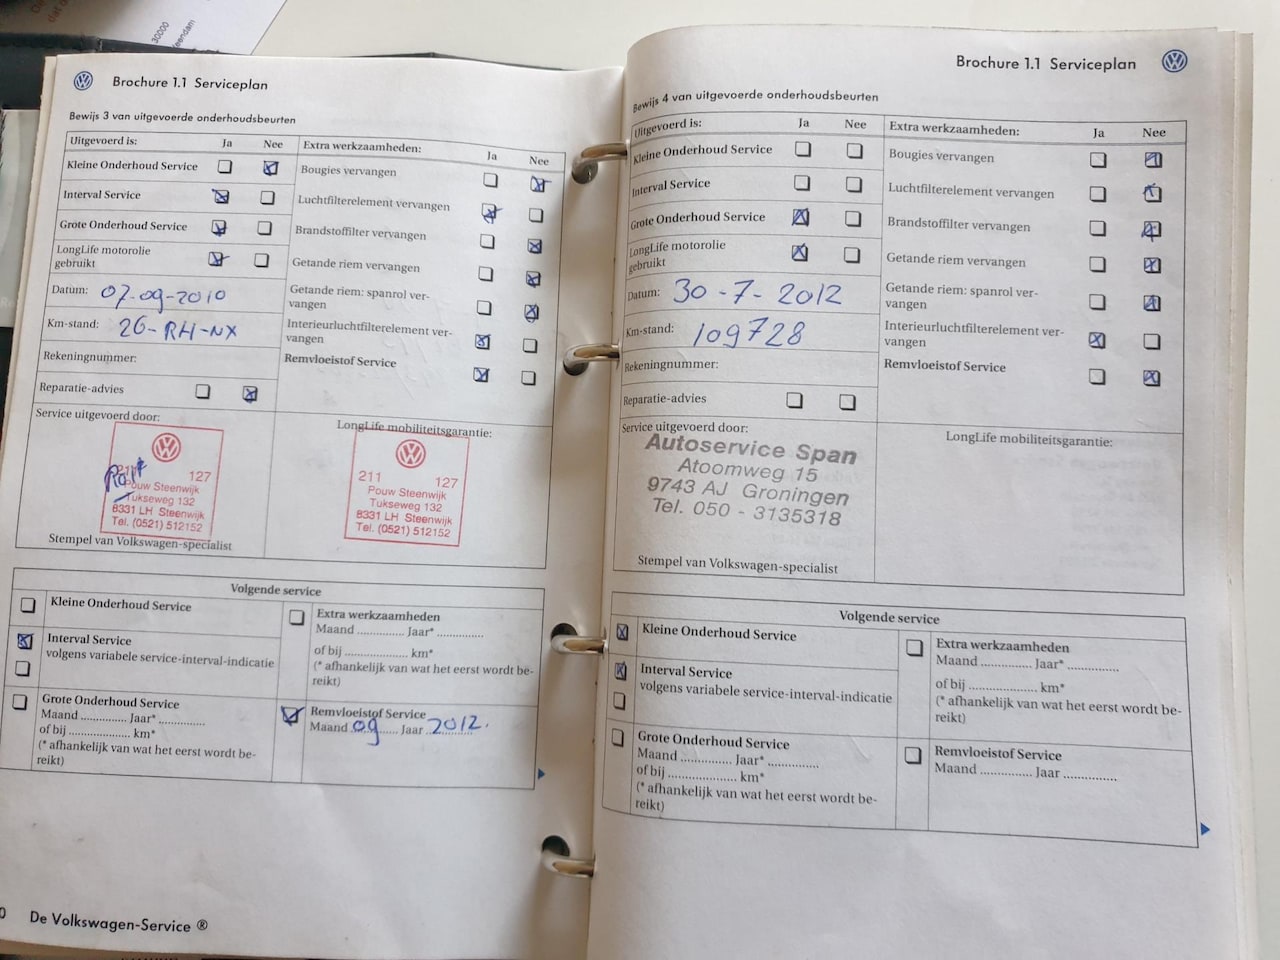 30000
Brochure 1.1 Serviceplan
Bewijs 3 van uitgevoerde onderhoudsbeurten
Uitgevoerd is: Ja Nee
Kleine Onderhoud Service
Interval Service
Grote Onderhoud Service
LongLife motorolie
gebruikt
Datum: 07-09-2010
Km-stand: 26-RH-NX
Rekeningnummer:
Reparatie-advies
Extra werkzaamheden: Ja Nee
Bougies vervangen
Luchtfilterelement vervangen
Brandstoffilter vervangen
Getande riem vervangen
Getande riem: spanrol ver-
vangen
Interieurluchtfilterelement ver-
vangen
Remvloeistof Service
Service uitgevoerd door:
127
Pouw Steenwijk
Tukseweg 132
8331 LH Steenwijk
Tel. (0521) 512152
Stempel van Volkswagen-specialist
LongLife mobiliteitsgarantie:
211 127
Pouw Steenwijk
Tukseweg 132
8331 LH Steenwijk
Tel. (0521) 512152
Volgende service
Kleine Onderhoud Service
Interval Service
volgens variabele service-interval-indicatie
Grote Onderhoud Service
Maand ............. Jaar* .............
of bij ......................... km*
(* afhankelijk van wat het eerst wordt be-
reikt)
Extra werkzaamheden
Maand ............. Jaar* .............
of bij .................. km*
(* afhankelijk van wat het eerst wordt be-
reikt)
Remvloeistof Service
Maand 09 Jaar 2012.
De Volkswagen-Service ®
Brochure 1.1 Serviceplan
Bewijs 4 van uitgevoerde onderhoudsbeurten
Uitgevoerd is: Ja Nee
Kleine Onderhoud Service
Interval Service
Grote Onderhoud Service
LongLife motorolie
gebruikt
Datum: 30-7-2012
Km-stand: 109728
Rekeningnummer:
Reparatie-advies
Extra werkzaamheden: Ja Nee
Bougies vervangen
Luchtfilterelement vervangen
Brandstoffilter vervangen
Getande riem vervangen
Getande riem: spanrol ver-
vangen
Interieurluchtfilterelement ver-
vangen
Remvloeistof Service
Service uitgevoerd door:
Autoservice Span
Atoomweg 15
9743 AJ Groningen
Tel. 050 - 3135318
Stempel van Volkswagen-specialist
LongLife mobiliteitsgarantie:
Volgende service
Kleine Onderhoud Service
Interval Service
volgens variabele service-interval-indicatie
Grote Onderhoud Service
Maand .............. Jaar* ..............
of bij .................... km*
(* afhankelijk van wat het eerst wordt be-
reikt)
Extra werkzaamheden
Maand .............. Jaar* ..............
of bij .................... km*
(* afhankelijk van wat het eerst wordt be-
reikt)
Remvloeistof Service
Maand .............. Jaar ..............